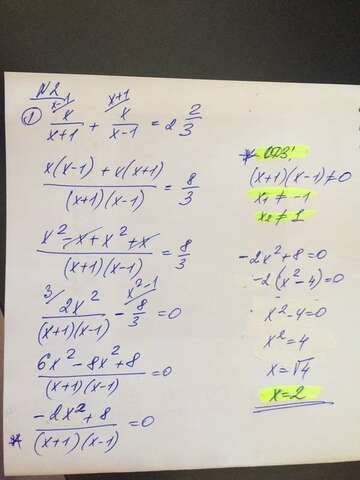 N2
1) x-1/ x/(x+1) + x+1/ x/(x-1) = 2 2/3
(x(x-1) + x(x+1))/((x+1)(x-1)) = 8/3
(x² - x + x² + x)/((x+1)(x-1)) = 8/3
3/ 2x²/((x+1)(x-1)) - x²-1/ 8/3 = 0
(6x² - 8x² + 8)/((x+1)(x-1)) = 0
* (-2x² + 8)/((x+1)(x-1)) = 0
* ОДЗ:
(x+1)(x-1) ≠ 0
x₁ ≠ -1
x₂ ≠ 1
-2x² + 8 = 0
-2(x² - 4) = 0
x² - 4 = 0
x² = 4
x = √4
x = 2